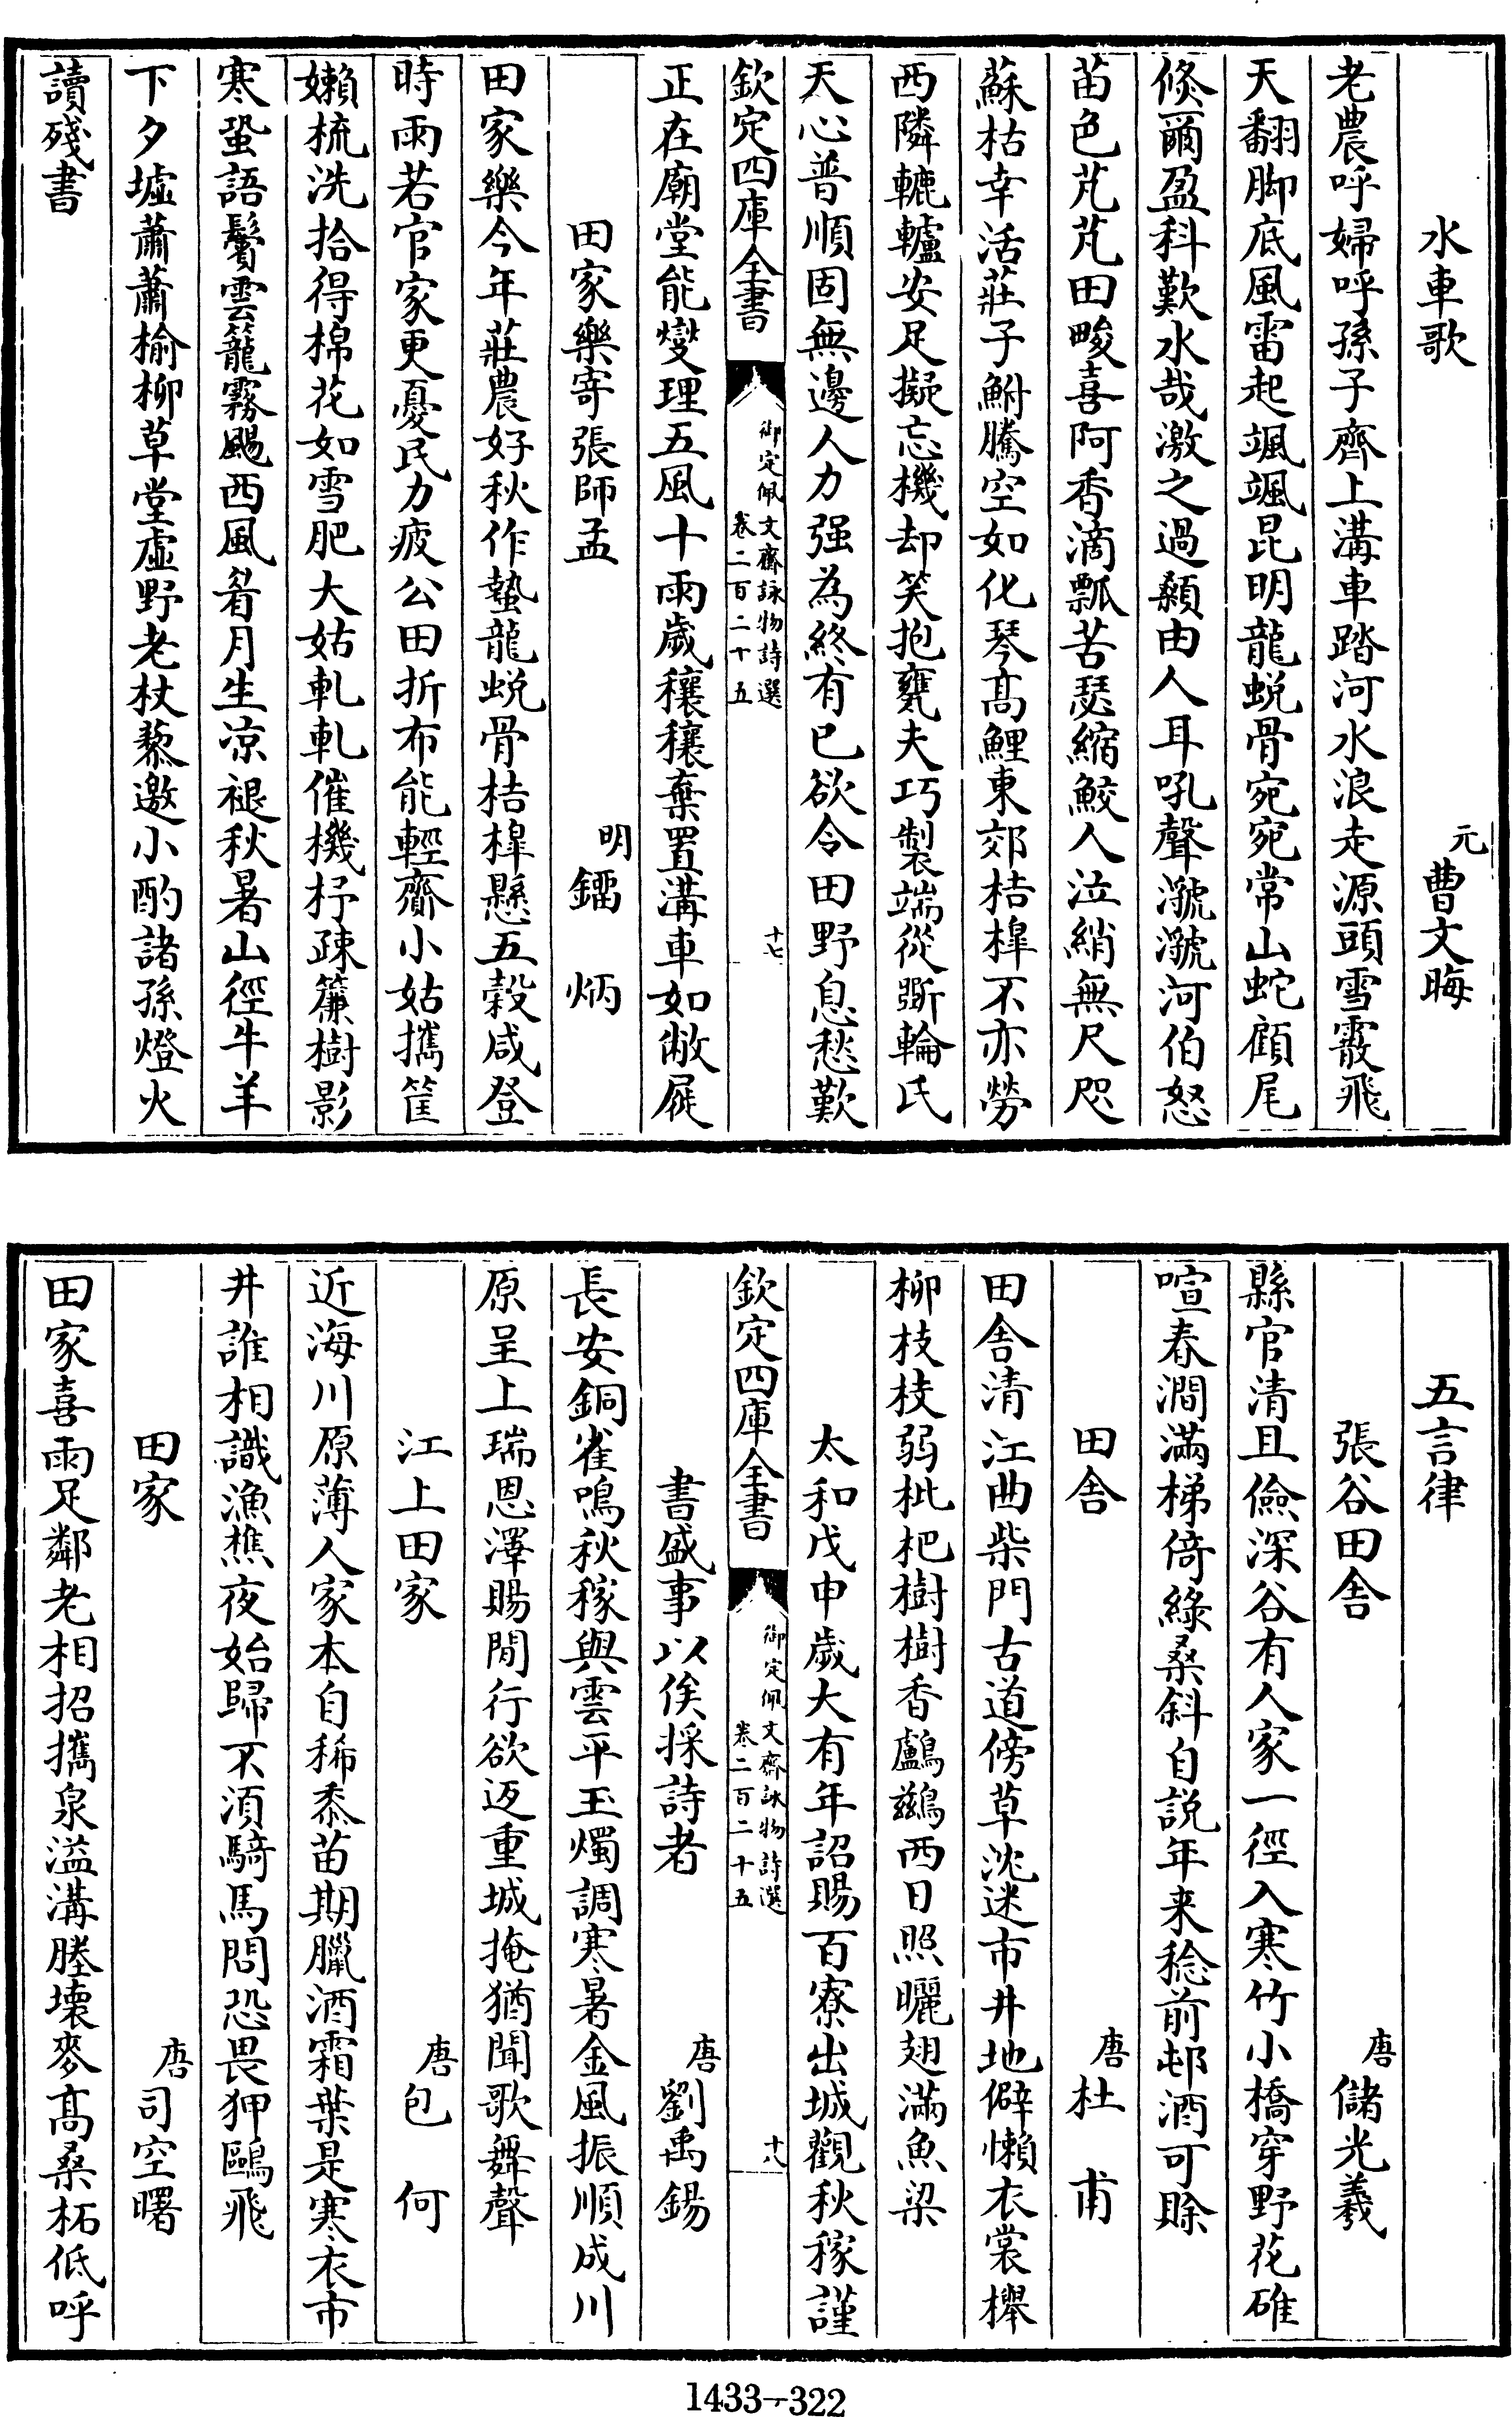 水車歌　元　曹文晦
老農呼婦呼孫子齊上溝車踏河水浪走源頭雪霰飛
天翻脚底風雷起颯颯昆明龍蛻骨宛宛常山蛇顧尾
倐爾盈科歎水哉激之過顙由人耳吼聲㶁㶁河伯怒
苗色芃芃田畯喜阿香滴瓢苦瑟縮鮫人泣綃無尺咫
蘇枯幸活莊子鮒騰空如化琴髙鯉東郊桔槹不亦勞
西隣轆轤安足擬忘機却笑抱甕夫巧製端從斲輪氏
天心普順固無邊人力强為終有已欲令田野息愁歎
欽定四庫全書　御定佩文齋詠物詩選　卷二百二十五　十七
正在廟堂能燮理五風十雨歲穰穰棄置溝車如敝屣
田家樂寄張師孟　明　鐳　炳
田家樂今年莊農好秋作蟄龍蛻骨桔槹懸五穀咸登
時雨若官家更憂民力疲公田折布能輕齎小姑攜筐
嬾梳洗拾得棉花如雪肥大姑軋軋催機杼疎簾樹影
寒蛩語鬢雲籠霧颺西風眉月生凉褪秋暑山徑牛羊
下夕墟蕭蕭榆柳草堂虛野老杖藜邀小酌諸孫燈火
讀殘書
五言律
張谷田舎　唐　儲光羲
縣官清且儉深谷有人家一徑入寒竹小橋穿野花碓
喧春澗滿梯倚綠桑斜自説年来稔前邨酒可賖
田舎　唐　杜　甫
田舎清江曲柴門古道傍草沈迷市井地僻懶衣裳櫸
柳枝枝弱枇杷樹樹香鸕鷀西日照曬翅滿魚梁
太和戊申歲大有年詔賜百寮出城觀秋稼謹
欽定四庫全書　御定佩文齋詠物詩選　卷二百二十五　十八
書盛事以俟採詩者　唐　劉禹錫
長安銅雀鳴秋稼與雲平玉燭調寒暑金風振順成川
原呈上瑞恩澤賜閒行欲返重城掩猶聞歌舞聲
江上田家　唐　包　何
近海川原薄人家本自稀黍苗期臘酒霜葉是寒衣市
井誰相識漁樵夜始歸不須騎馬問恐畏狎鷗飛
田家　唐　司空曙
田家喜雨足鄰老相招攜泉溢溝塍壞麥髙桑柘低呼
1433-322